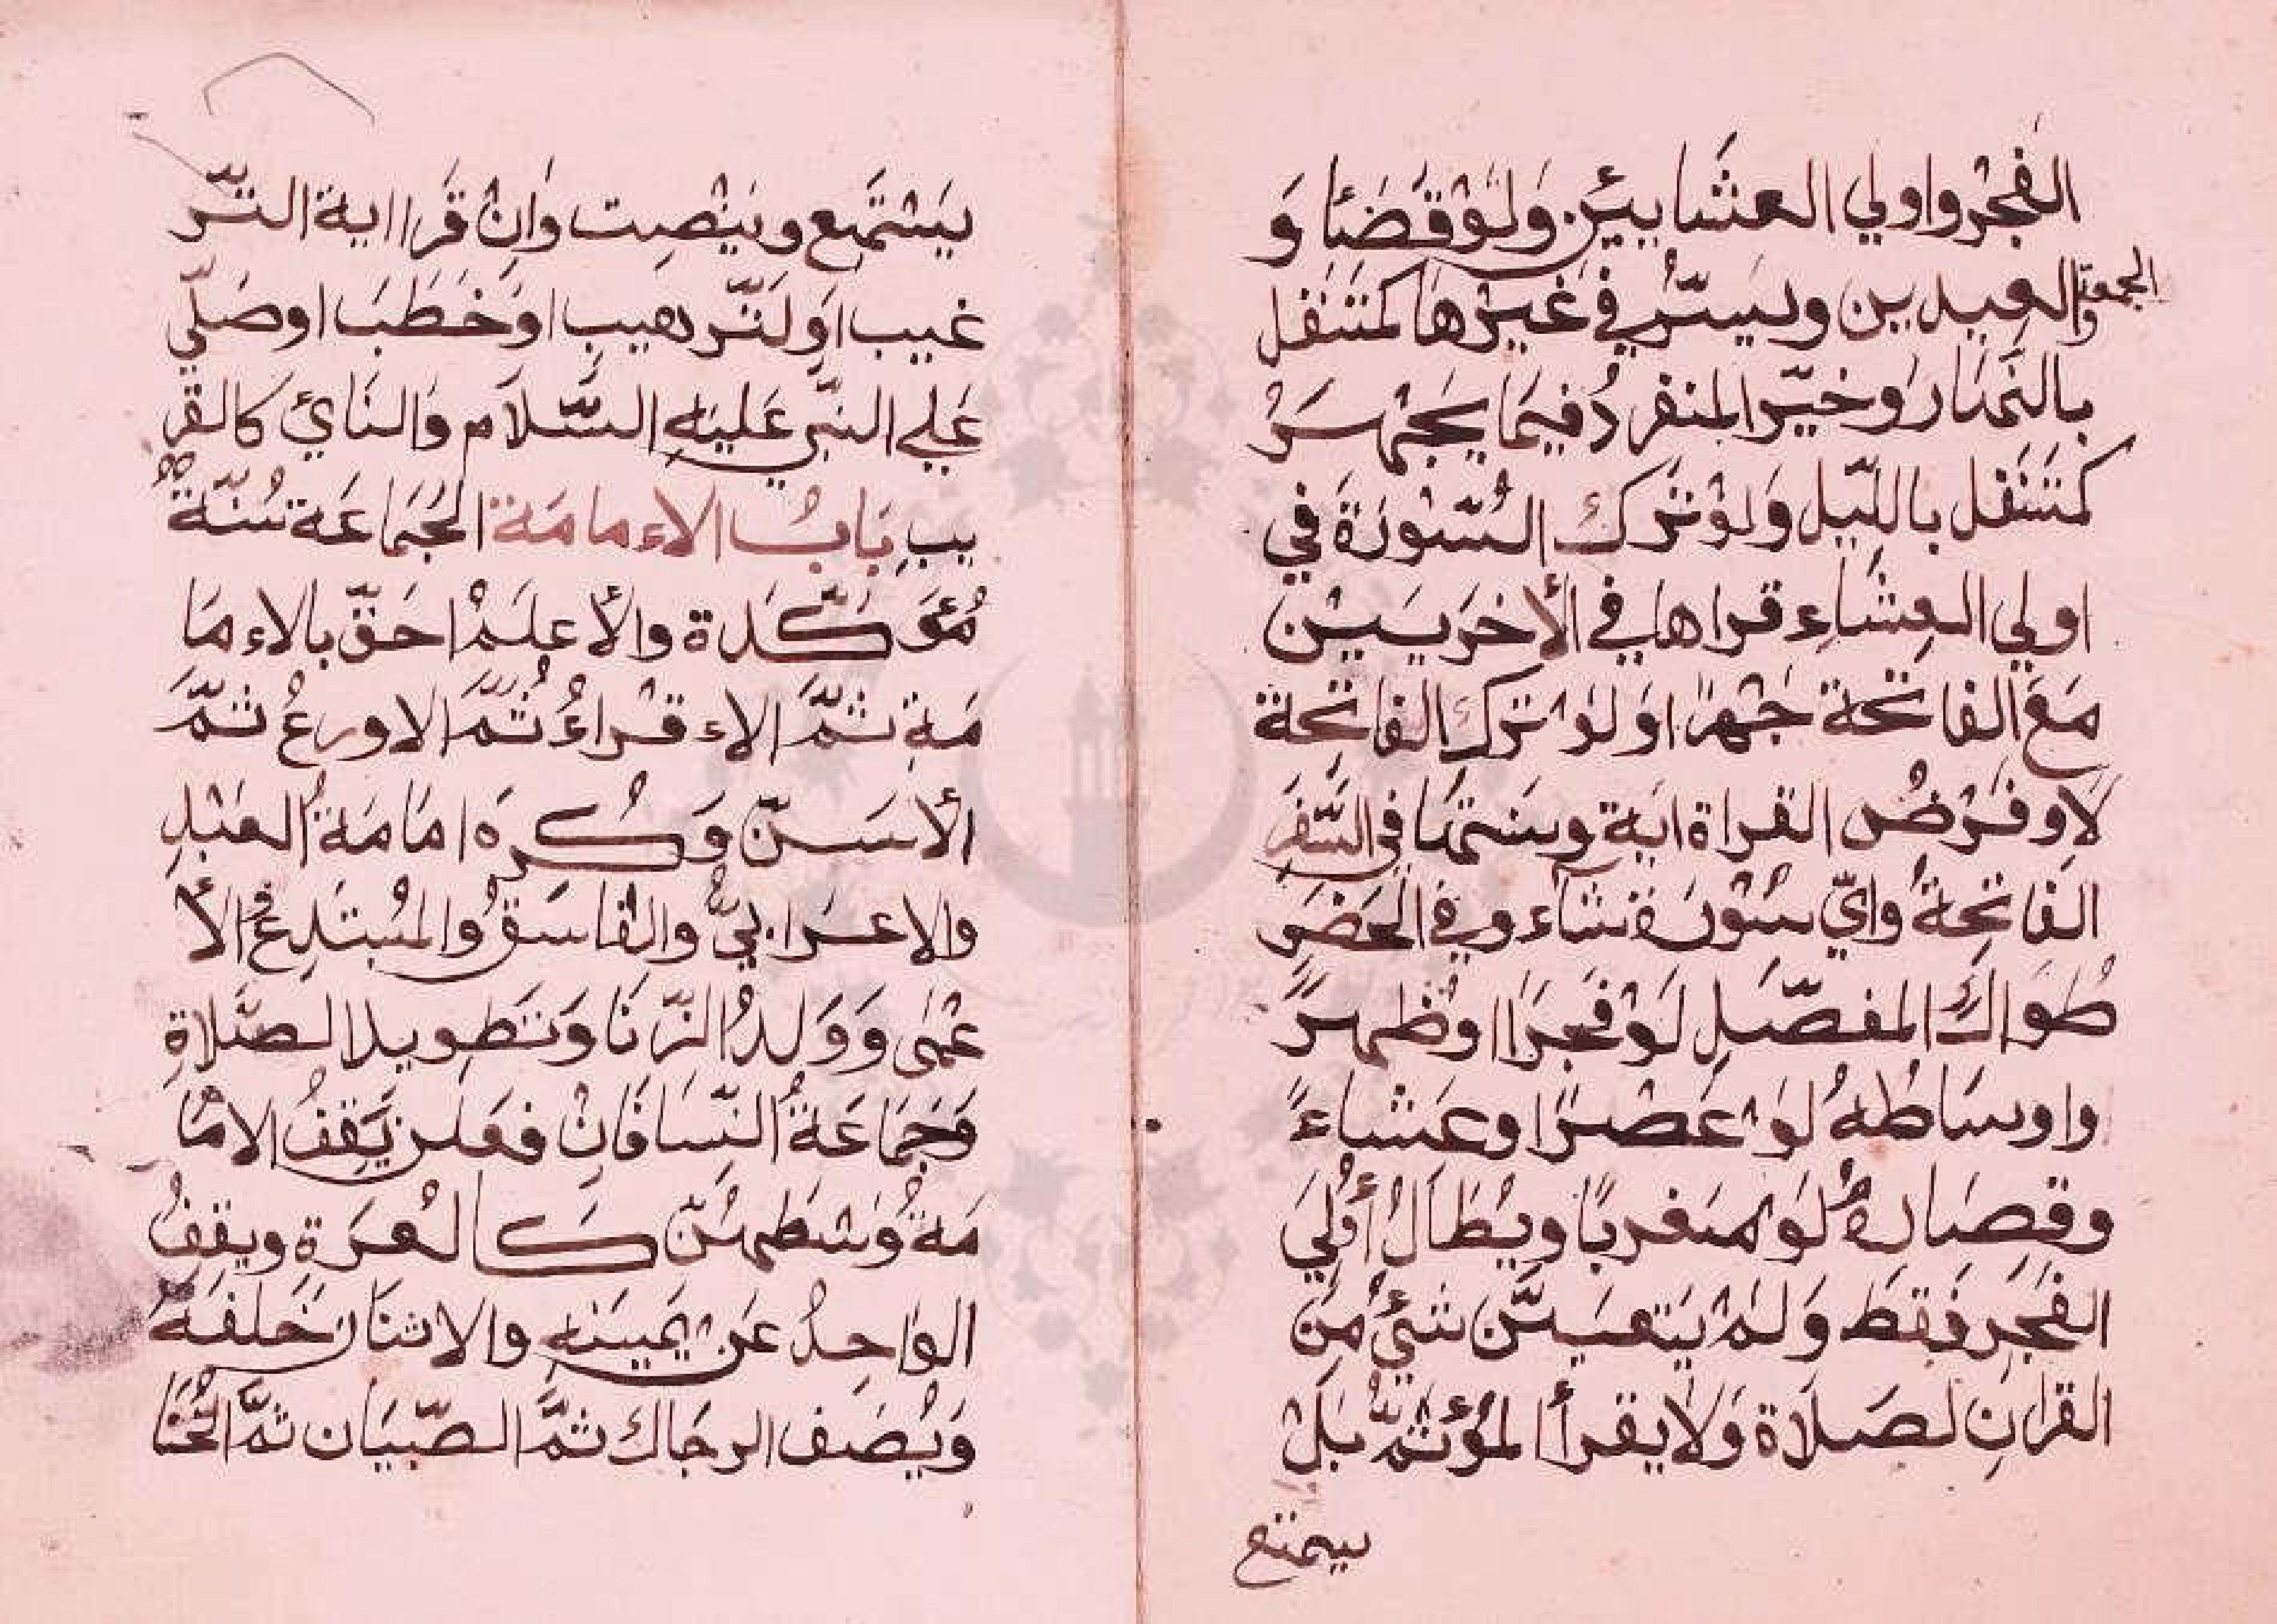 الفجر واولي العشايين ولو قضا و
الجمعة
والعيدين ويسر في غيرها كمتنفل
بالنهار وخير المنفرد فيما يجهر
كمتنفل بالليل ولو ترك السورة في
اولي العشاء قراها في الأخريين
مع الفاتحة جهرا او لو ترك الفاتحة
لا و فرض القراة اية وسنتها في السفر
الفاتحة واي سورة شاء وفي الحضر
طوال المفصل لو فجرا او ظهرا
واوساطه لو عصرا وعشاء
وقصاره لو مغربا ويطال أولي
الفجر فقط ولم يتعين شيئ من
القران لصلاة ولا يقرأ المؤتم بل
يستمع وينصت وان قرا اية التر
غيب او لترهيب او خطب او صلي
علي النبي عليه السلام والنائ كالقر
يب باب الاءمامة الجماعة سنة
مؤكدة والأعلم احق بالاءما
مة ثم الاءقراء ثم الاورع ثم
الأسن وكره امامة العبد
والاعرابي والفاسق والمبتدع الأ
عمى وولد الزنا وتطويل الصلاة
وجماعة النسا فان فعلن يقف الاما
مة وسطهن كالعرة ويقف
الواحد عن يمينه والاثنان خلفه
ويصف الرجال ثم الصبيان ثم الخنا